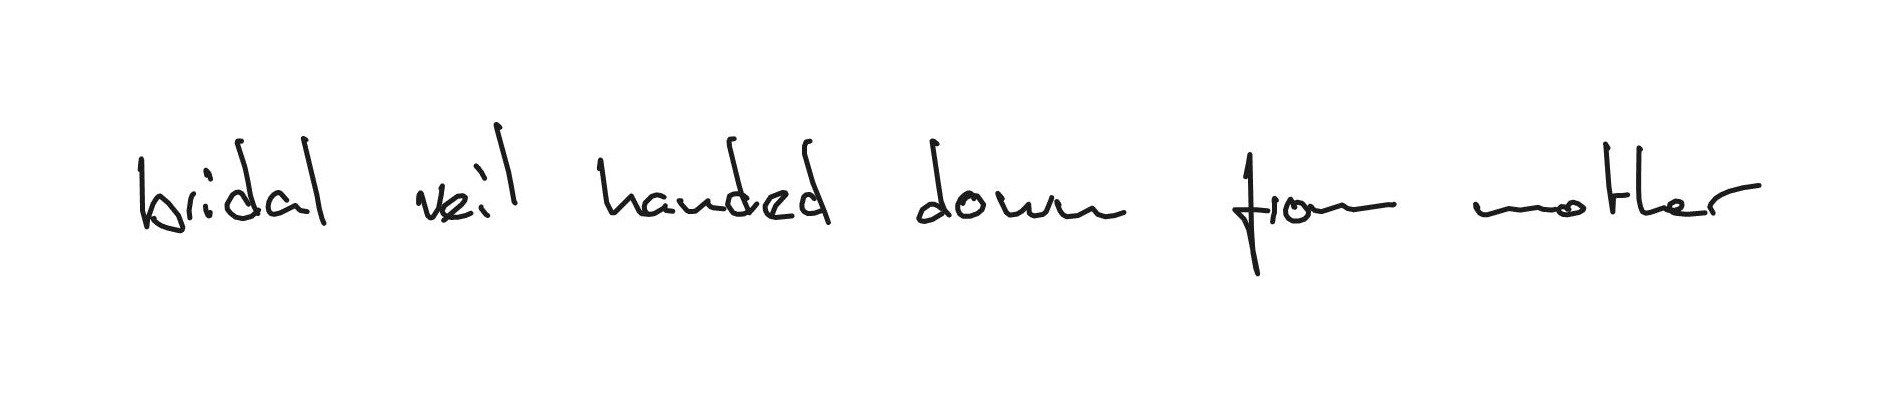 bridal veil handed down from mother